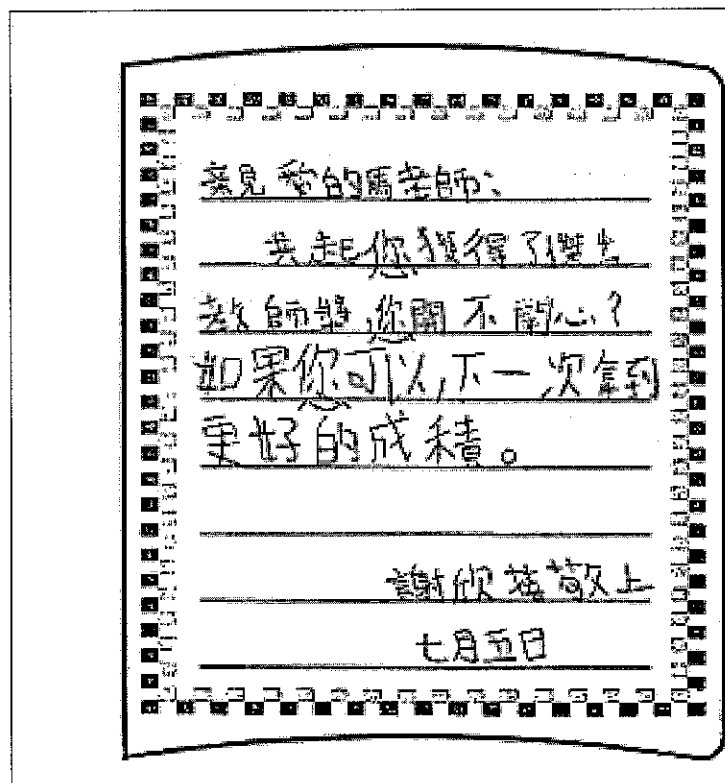 親愛的馬老師:
恭起您獲得了傑出
教師獎,您開不開心?
如果您可以,下一次拿到
更好的成積。
謝欣 敬上
七月五日